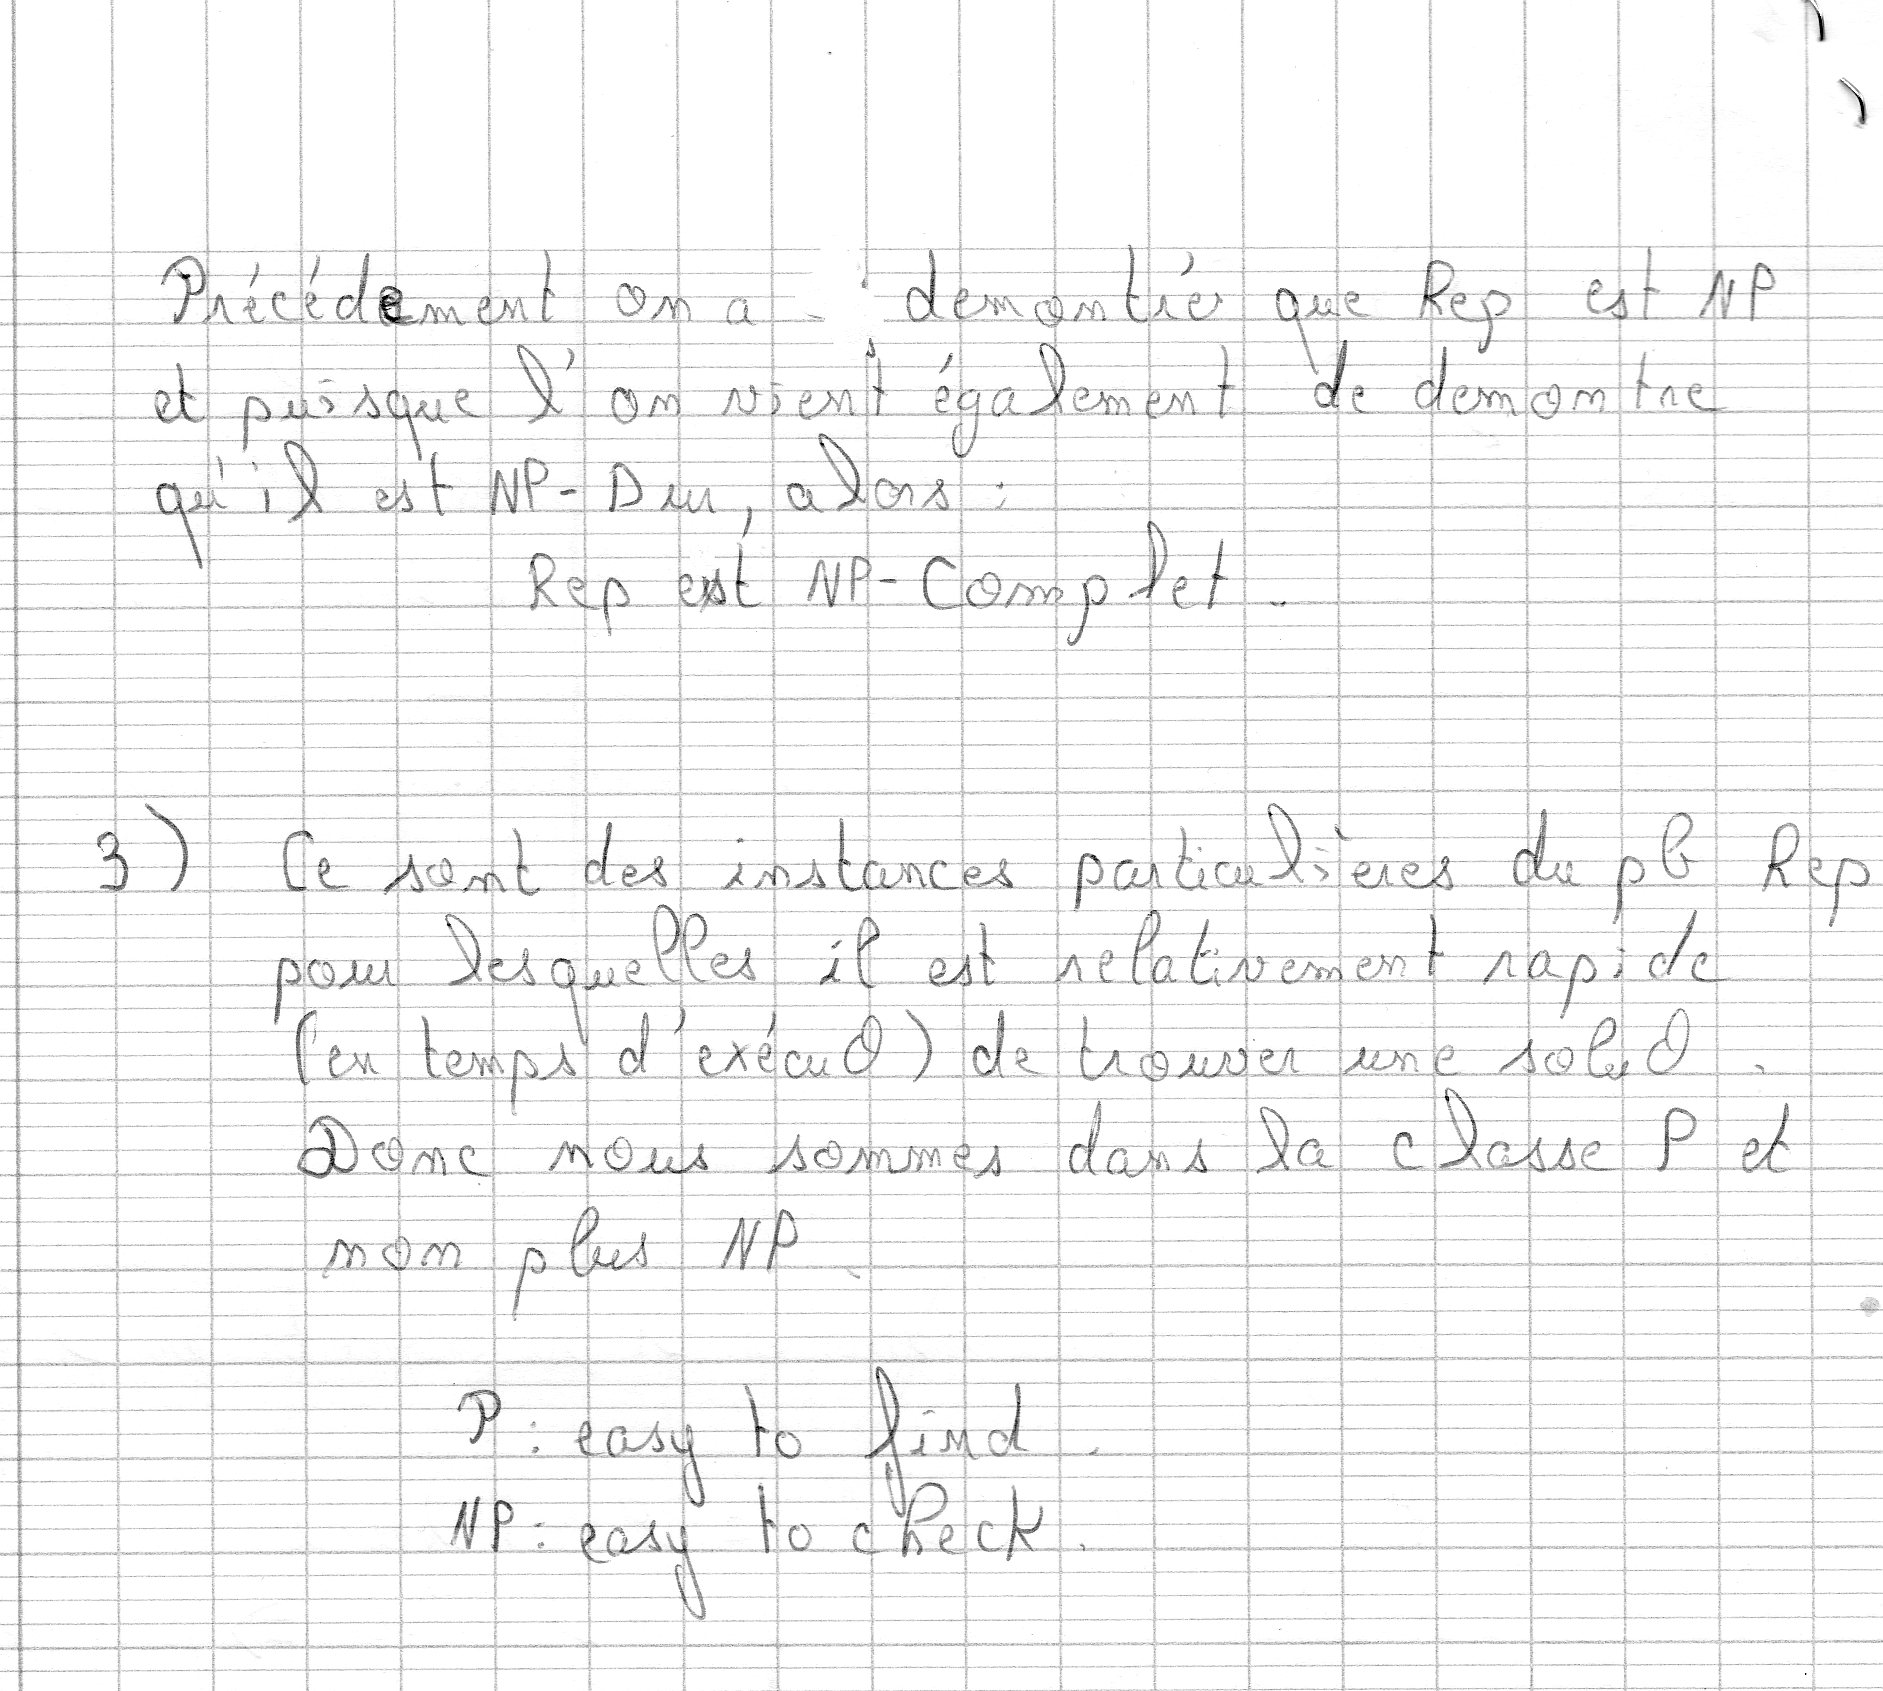 Précédement on a démontré que Rep est NP
et puisque l'on vient également de demontre
qu'il est NP-Dur, alors :
Rep est NP-Complet.
3) Ce sont des instances particulières du pb Rep
pour lesquelles il est relativement rapide
(en temps d'exécuθ) de trouver une soluθ.
Donc nous sommes dans la classe P et
non plus NP.
P : easy to find.
NP : easy to check.